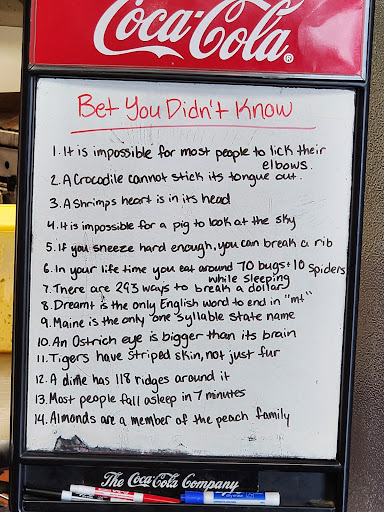 Coca-Cola®
Bet You Didn't Know
1. It is impossible for most people to lick their
elbows.
2. A Crocodile cannot stick its tongue out.
3. A Shrimps heart is in its head
4. It is impossible for a pig to look at the sky
5. If you sneeze hard enough, you can break a rib
6. In your life time you eat around 70 bugs + 10 Spiders
while sleeping
7. There are 293 ways to break a dollar
8. Dreamt is the only English word to end in "mt"
9. Maine is the only one syllable state name
10. An Ostrich eye is bigger than its brain
11. Tigers have striped skin, not just fur
12. A dime has 118 ridges around it
13. Most people fall asleep in 7 minutes
14. Almonds are a member of the peach family
The Coca-Cola Company